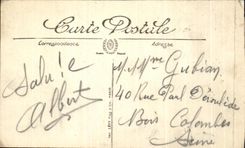 Carte Postale
Correspondance
Adresse
Salut
Albert
M. & Mme Gubian
40 Rue Paul Déroulède
Bois Colombes
Seine